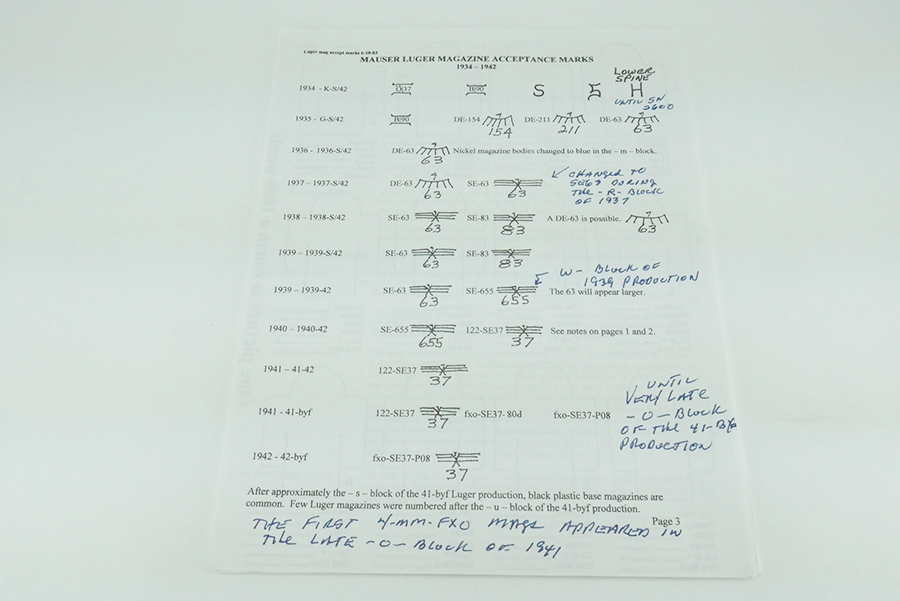 Luger mag accept marks 6-10-03
MAUSER LUGER MAGAZINE ACCEPTANCE MARKS
1934 – 1942
LOWER
SPINE
1934 - K-S/42 Ö37 B/90 S 5 H
UNTIL SN
2600
1935 - G-S/42 B/90 DE-154 154 DE-211 211 DE-63 63
1936 - 1936-S/42 DE-63 63 Nickel magazine bodies changed to blue in the – m – block.
1937 – 1937-S/42 DE-63 63 SE-63 63
CHANGED TO
SE63 DURING
THE -R- BLOCK
OF 1937
1938 – 1938-S/42 SE-63 63 SE-83 83 A DE-63 is possible. 63
1939 – 1939-S/42 SE-63 63 SE-83 83
W- BLOCK OF
1939 PRODUCTION
1939 – 1939-42 SE-63 63 SE-655 655 The 63 will appear larger.
1940 – 1940-42 SE-655 655 122-SE37 37 See notes on pages 1 and 2.
1941 – 41-42 122-SE37 37
1941 - 41-byf 122-SE37 37 fxo-SE37- 80d fxo-SE37-P08
UNTIL
VERY LATE
-O- BLOCK
OF THE 41-Byf
PRODUCTION
1942 - 42-byf fxo-SE37-P08 37
After approximately the – s – block of the 41-byf Luger production, black plastic base magazines are
common. Few Luger magazines were numbered after the – u – block of the 41-byf production.
Page 3
THE FIRST 4-MM-FXO MAGS APPEARED IN
THE LATE -O- BLOCK OF 1941